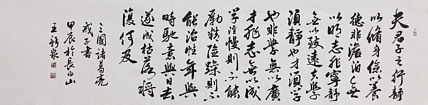 夫君子之行靜
以脩身儉以養
德非澹泊無
以明志非寧靜
無以致遠夫學
須靜也才須學
也非學無以廣
才非志無以成
學淫慢則不能
勵精險躁則不
能治性年與
時馳意與日去
遂成枯落將
復何及
三國諸葛亮
戒子書
甲辰於長白山